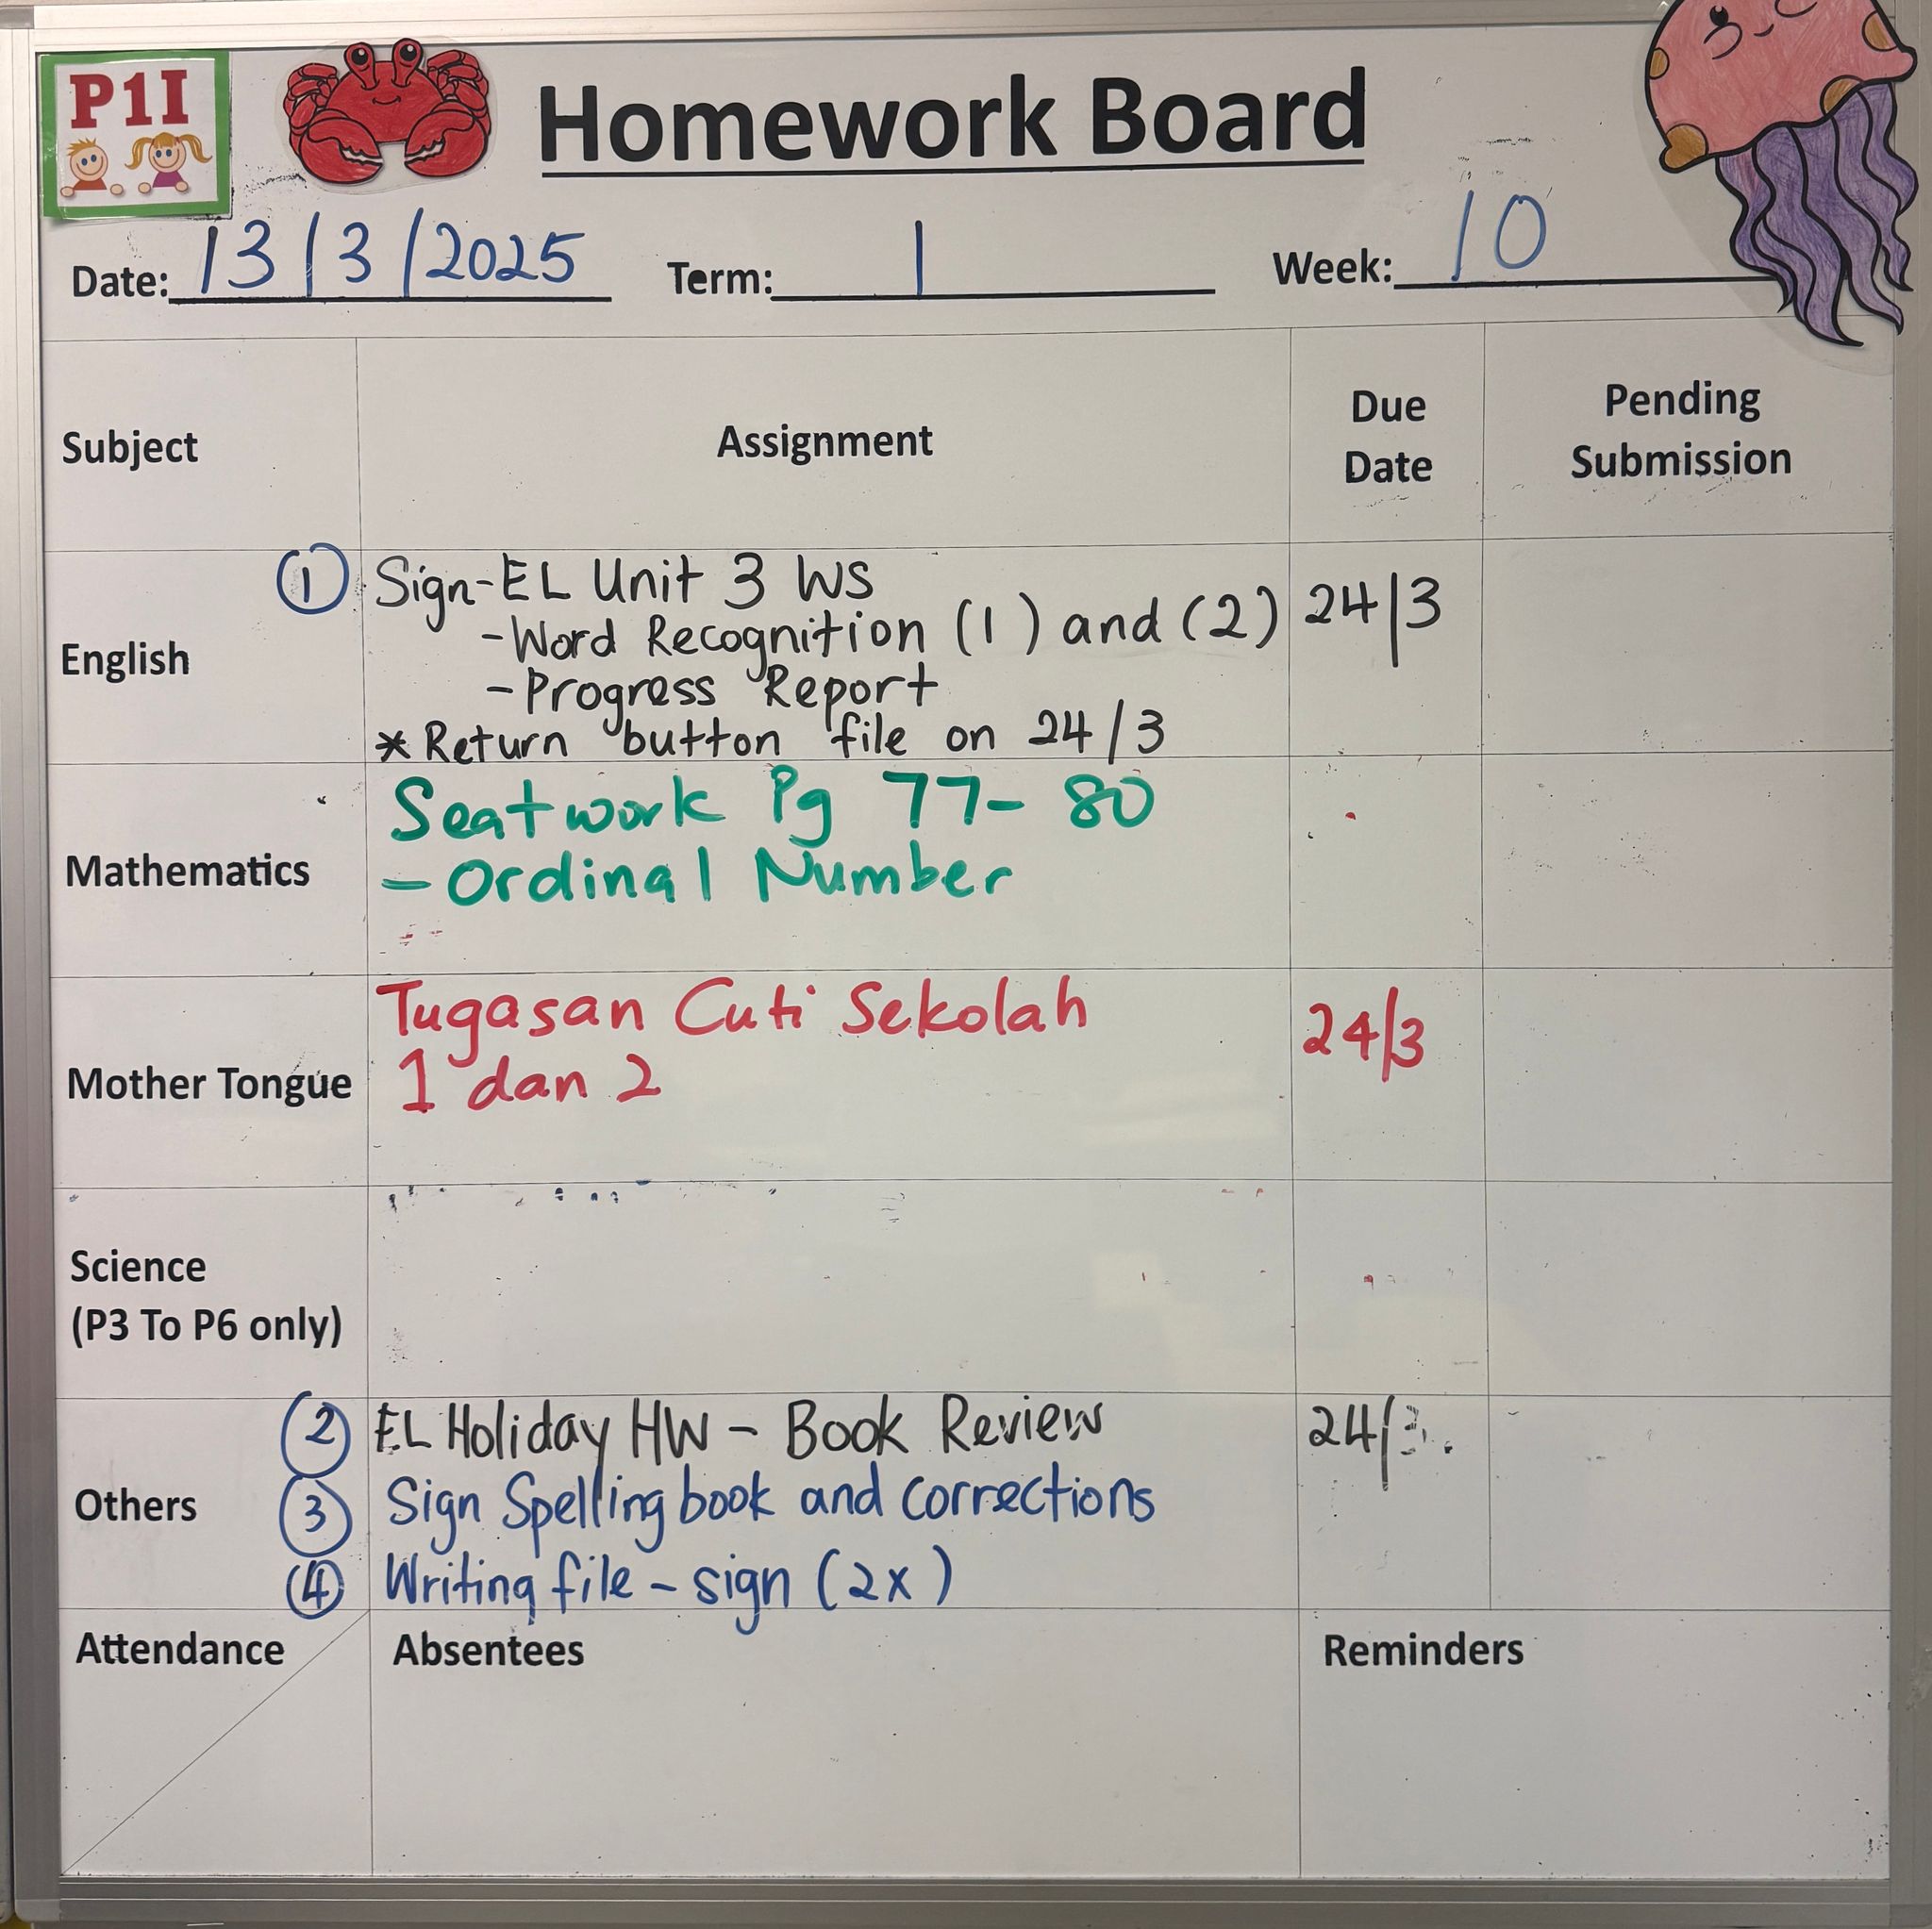 P1I
Homework Board
Date: 13/3/2025 Term: 1 Week: 10
Subject Assignment Due Date Pending Submission
English
① Sign-EL Unit 3 WS
-Word Recognition (1) and (2) 24/3
-Progress Report
*Return button file on 24/3
Mathematics
Seatwork Pg 77-80
- Ordinal Number
Mother Tongue
Tugasan Cuti Sekolah 24/3
1 dan 2
Science
(P3 To P6 only)
Others
② EL Holiday HW - Book Review 24/3.
③ Sign Spelling book and corrections
④ Writing file - sign (2x)
Attendance Absentees Reminders